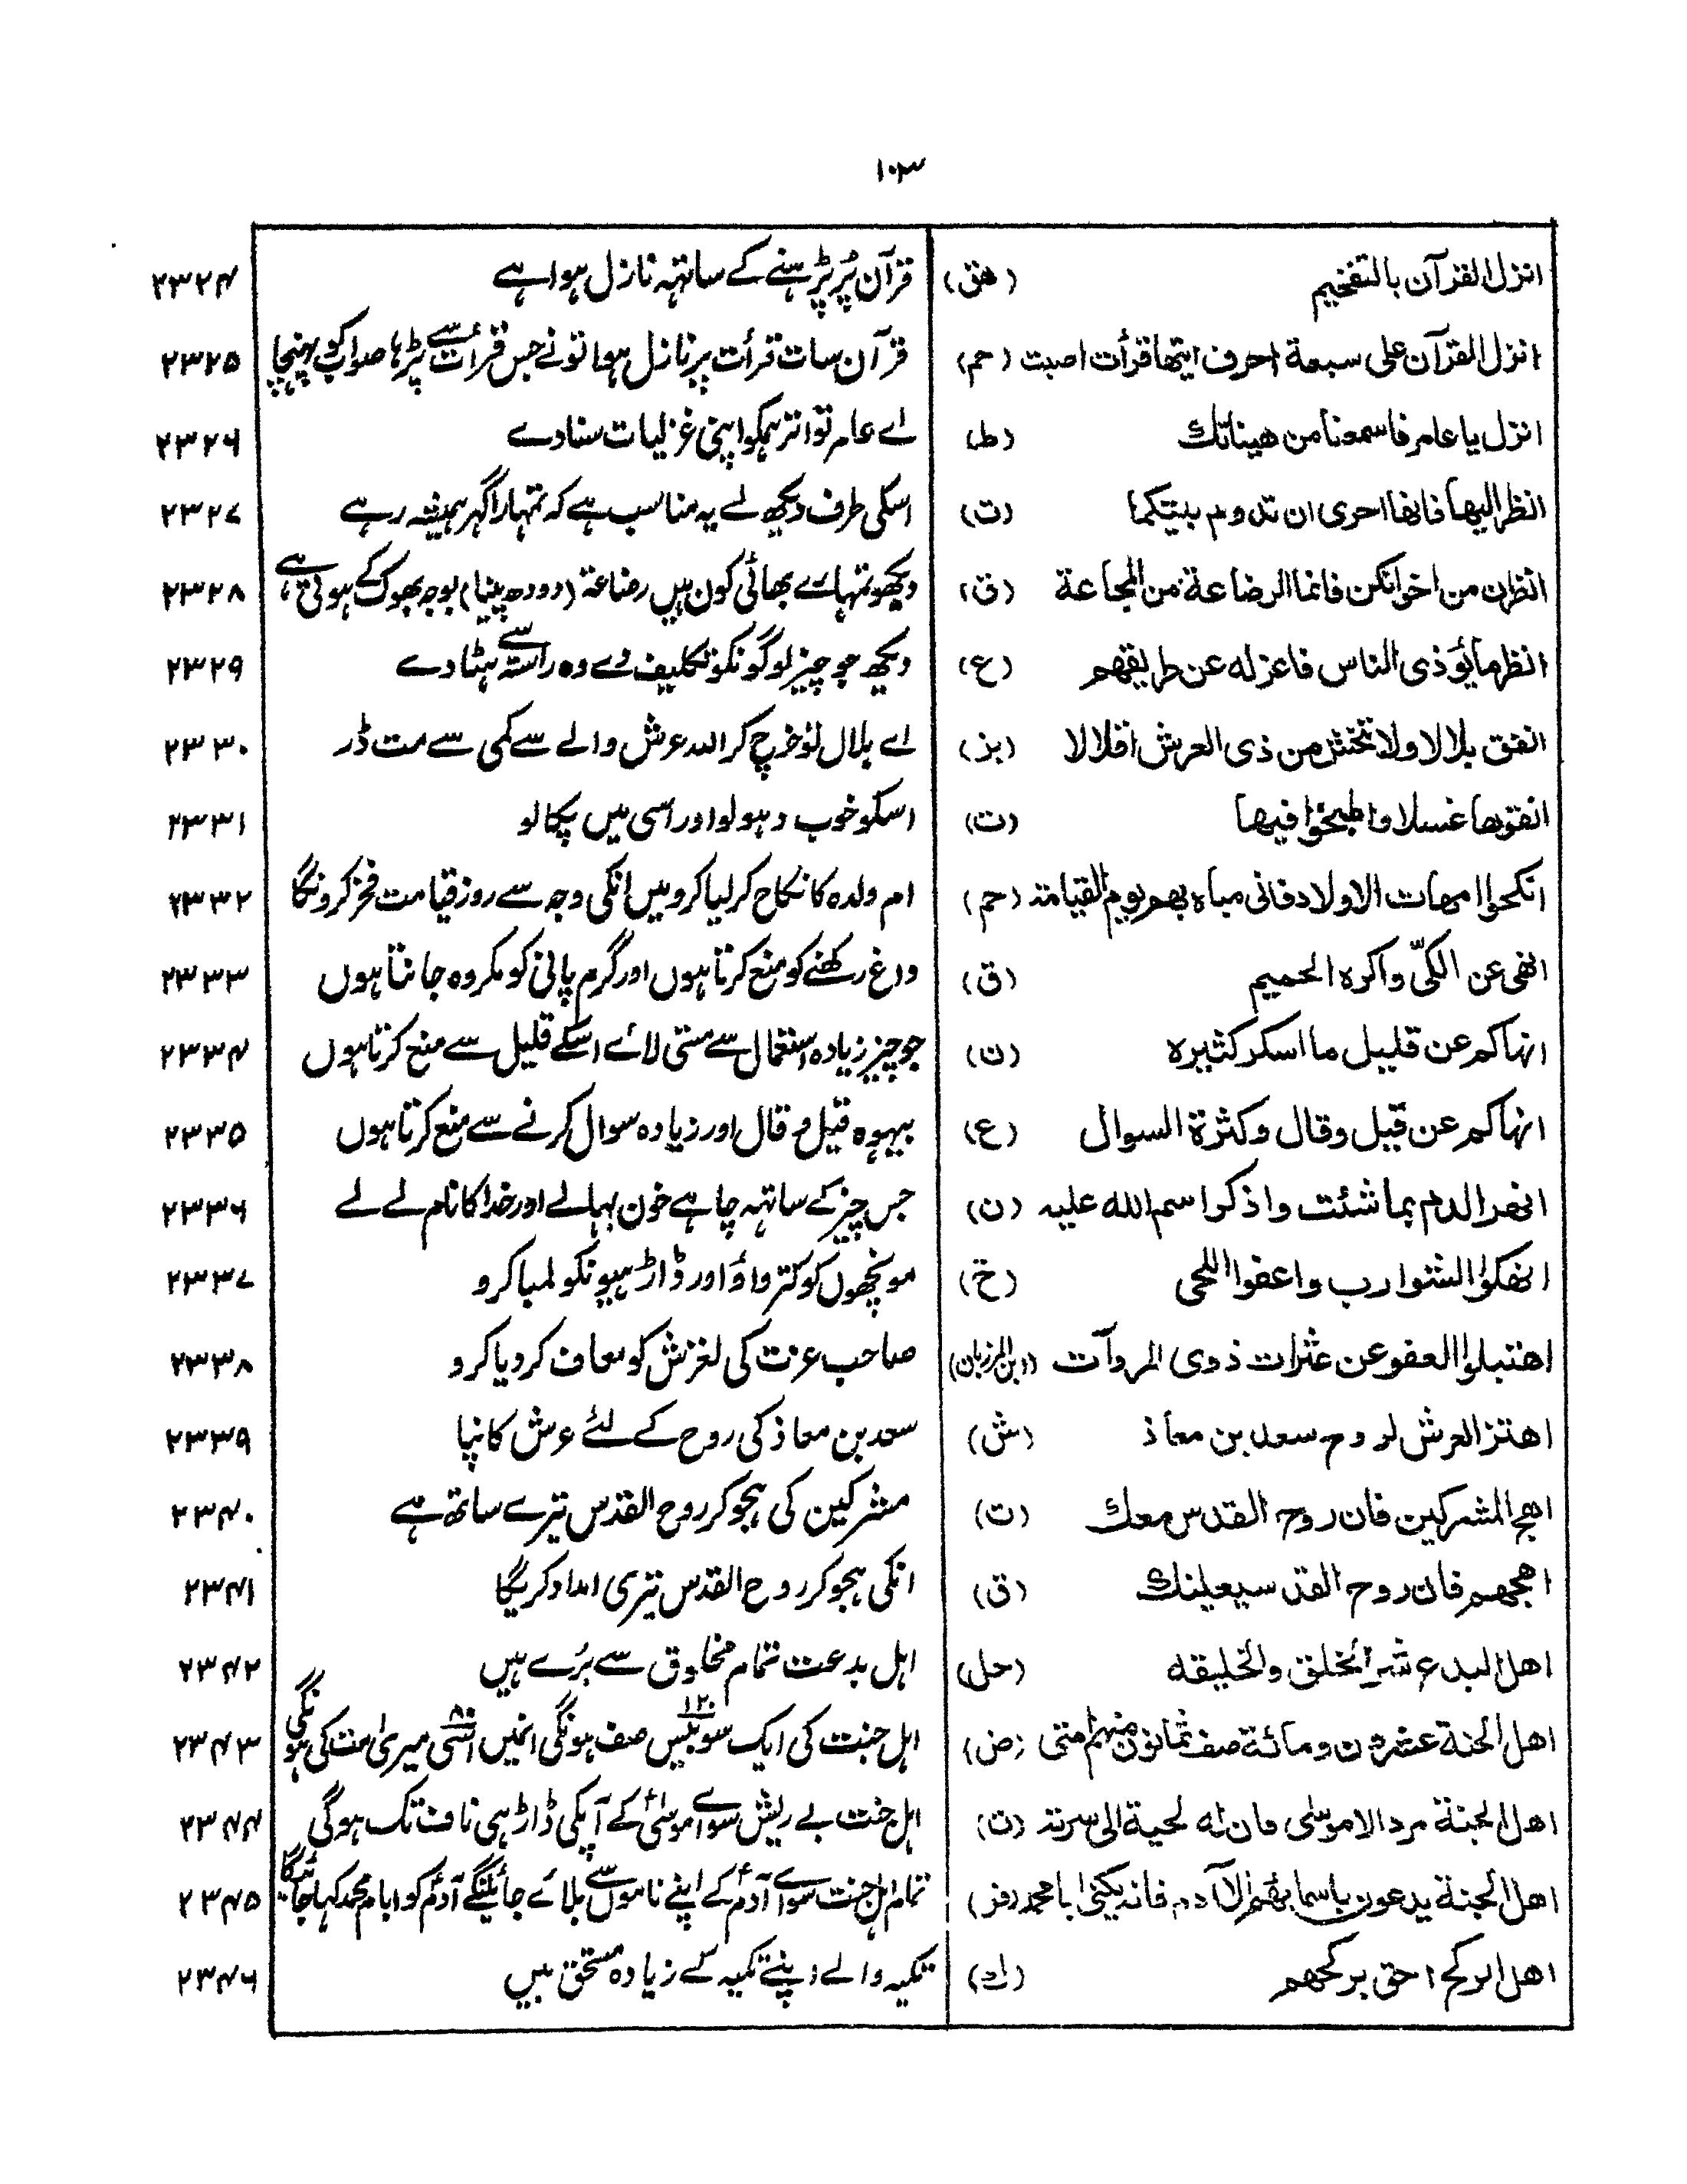 ۱۰۳
انزل القرآن بالتفخیم (ھق) قرآن پُر پڑہنے کے ساتھہ نازل ہوا ہے ۲۳۲۴
انزل القرآن علی سبعة احرف ایتھا قرأت اصبت (حم) قرآن سات قرأت پر نازل ہوا تو نے جس قرأت سے پڑہا صواب کو پہنچا ۲۳۲۵
انزل یا عامر فاسمعنا من ھیناتك (ط) اے عامر تو اتر ہمکو اپنی غزلیات سنادے ۲۳۲۶
انظر الیھا فانھا احری ان تدوم بیتکما (ت) اسکی طرف دیکھ لے یہ مناسب ہے کہ تمہارا گہر ہمیشہ رہے ۲۳۲۷
انظرن من اخوانکن فانما الرضاعة من المجاعة (ق) دیکھو تمہارے بھائی کون ہیں رضاعة (دودھ پینا) بوجہ بھوک کے ہوتی ہے ۲۳۲۸
انظر ما یؤذی الناس فاعزله عن طریقھم (ع) دیکھ جو چیز لوگونکو تکلیف دے وہ راستہ سے ہٹا دے ۲۳۲۹
انفق بلالا ولا تخش من ذی العرش اقلالا (بز) اے بلال تو خرچ کر اللہ عرش والے سے کمی سے مت ڈر ۲۳۳۰
انقوھا غسلا واطبخوا فیھا (ت) اسکو خوب دہولو اور اسی میں پکالو ۲۳۳۱
انکحوا امھات الاولاد فانی مباہ بھم یوم القیامة (حم) ام ولدہ کا نکاح کر لیا کرو میں انکی وجہ سے روز قیامت فخر کرونگا ۲۳۳۲
انھی عن الکیّ واکرہ الحمیم (ق) داغ رکھنے کو منع کرتا ہوں اور گرم پانی کو مکروہ جانتا ہوں ۲۳۳۳
انھاکم عن قلیل ما اسکر کثیرہ (ن) جو چیز زیادہ استعمال سے مستی لائے اسکے قلیل سے منع کرتا ہوں ۲۳۳۴
انھاکم عن قیل وقال وکثرة السوال (ع) بیہوہ قیل و قال اور زیادہ سوال کرنے سے منع کرتا ہوں ۲۳۳۵
انھر الدم بما شئت واذکر اسم الله علیه (ن) جس چیز کے ساتھہ چاہے خون بہالے اور خدا کا نام لے لے ۲۳۳۶
انھکوا الشوارب واعفوا اللحی (خ) مونچھوں کو کترواؤ اور ڈاڑہیونکو لمبا کرو ۲۳۳۷
اھتبلوا العفو عن عثرات ذوی المروآت (ابن المرزبان) صاحب عزت کی لغزش کو معاف کردیا کرو ۲۳۳۸
اھتز العرش لروح سعد بن معاذ (ش) سعد بن معاذ کی روح کے لئے عرش کانپا ۲۳۳۹
اھج المشرکین فان روح القدس معك (ت) مشرکین کی ہجو کر روح القدس تیرے ساتھ ہے ۲۳۴۰
اھجھم فان روح القد سیعینك (ق) انکی ہجو کر روح القدس تیری امداد کریگا ۲۳۴۱
اھل البدع شر الخلق والخلیقه (حل) اہل بدعت تمام مخلوق سے بُرے ہیں ۲۳۴۲
اھل الجنة عشرون ومائة صف ثمانون منھم امتی (ض) اہل جنت کی ایک سو بیس ۱۲۰ صف ہونگی انمیں اسّی ۸۰ میری امت کی ہونگی ۲۳۴۳
اھل الجنة مرد الا موسٰی فان له لحیة الی سرته (ن) اہل جنت بے ریش سوائے موسٰی کے آپکی ڈاڑہی ناف تک ہوگی ۲۳۴۴
اھل الجنة یدعون باسمائھم الا آدم فانه یکنی ابا محمد (فر) تمام اہل جنت سوائے آدمؑ کے اپنے ناموں سے بلائے جائینگے آدمؑ کو ابا محمد کہا جائیگا ۲۳۴۵
اھل الرکح احق برکحھم (ك) تکیہ والے اپنے تکیہ کے زیادہ مستحق ہیں ۲۳۴۶